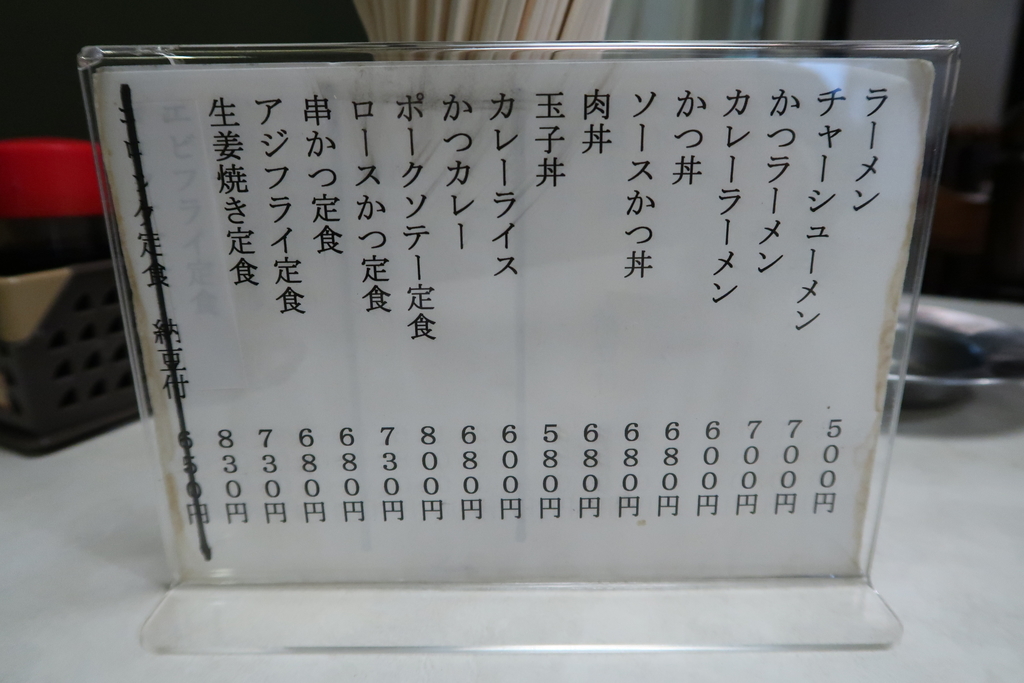 ラーメン 500円
チャーシューメン 700円
かつラーメン 700円
カレーラーメン 600円
かつ丼 680円
ソースかつ丼 680円
肉丼 680円
玉子丼 580円
カレーライス 600円
かつカレー 680円
ポークソテー定食 800円
ロースかつ定食 730円
串かつ定食 680円
アジフライ定食 680円
生姜焼き定食 730円
エビフライ定食 830円
定食 納豆付 650円